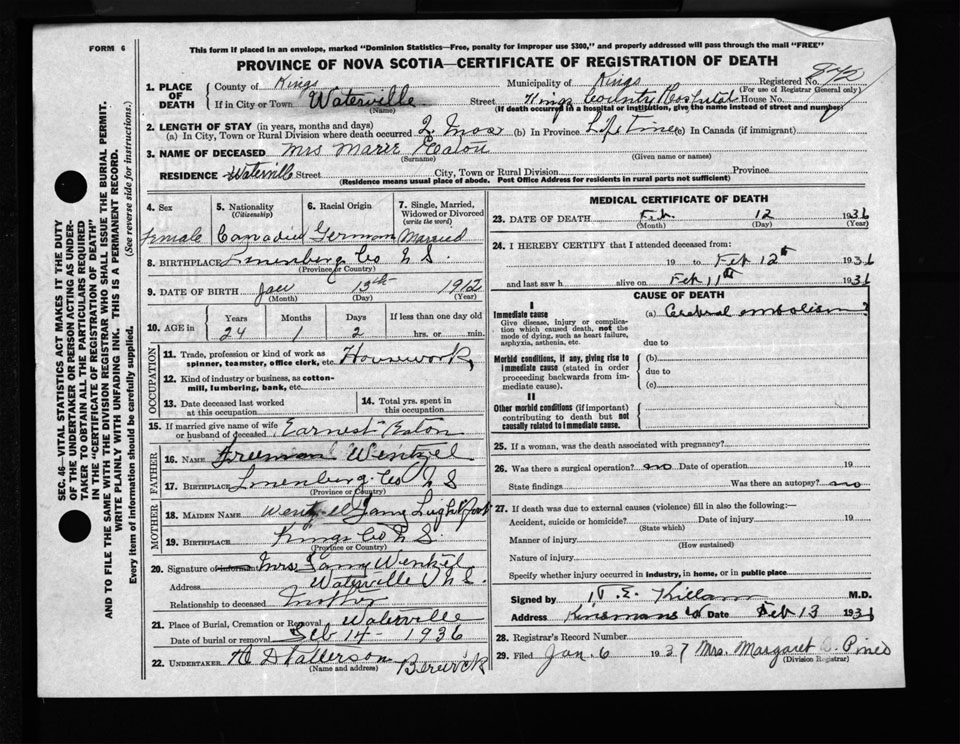 FORM 6
This form if placed in an envelope, marked "Dominion Statistics—Free, penalty for improper use $300," and properly addressed will pass through the mail "FREE"
PROVINCE OF NOVA SCOTIA—CERTIFICATE OF REGISTRATION OF DEATH
1. PLACE OF DEATH County of Kings Municipality of Kings Registered No. 842
(For use of Registrar General only)
If in City or Town Waterville Street Kings County Hospital House No.
(Name) (If death occurred in a hospital or institution, give the name instead of street and number)
2. LENGTH OF STAY (in years, months and days)
(a) In City, Town or Rural Division where death occurred 2 mos (b) In Province Life Time (c) In Canada (if immigrant)
3. NAME OF DECEASED Mrs Marie Eaton
(Surname) (Given name or names)
RESIDENCE Waterville Street City, Town or Rural Division Province
(Residence means usual place of abode. Post Office Address for residents in rural parts not sufficient)
4. Sex 5. Nationality (Citizenship) 6. Racial Origin 7. Single, Married, Widowed or Divorced (write the word)
female Canadian German Married
8. BIRTHPLACE Lunenburg Co N S.
(Province or Country)
9. DATE OF BIRTH Jan 13th 1912
(Month) (Day) (Year)
10. AGE in Years Months Days If less than one day old
24 1 2 hrs. or min.
OCCUPATION
11. Trade, profession or kind of work as spinner, teamster, office clerk, etc. Housework
12. Kind of industry or business, as cotton-mill, lumbering, bank, etc.
13. Date deceased last worked at this occupation
14. Total yrs. spent in this occupation
15. If married give name of wife or husband of deceased Earnest Eaton
FATHER
16. Name Freeman Wentzel
17. Birthplace Lunenburg Co N S
(Province or Country)
MOTHER
18. Maiden Name Lightfoot
19. Birthplace Kings Co N S.
(Province or Country)
20. Signature of informant Mrs Wentzel
Address Waterville N S.
Relationship to deceased Mother
21. Place of Burial, Cremation or Removal Waterville
Date of burial or removal Feb 14 - 1936
22. UNDERTAKER Patterson Berwick
(Name and address)
MEDICAL CERTIFICATE OF DEATH
23. DATE OF DEATH Feb. 12 1936
(Month) (Day) (Year)
24. I HEREBY CERTIFY that I attended deceased from:
19 to Feb 12th 1936
and last saw h alive on Feb 11th 1936
CAUSE OF DEATH
I
Immediate cause
Give disease, injury or complication which caused death, not the mode of dying, such as heart failure, asphyxia, asthenia, etc.
(a) Cerebral embolism?
due to
Morbid conditions, if any, giving rise to immediate cause (stated in order proceeding backwards from immediate cause).
(b)
due to
(c)
II
Other morbid conditions (if important) contributing to death but not causally related to immediate cause.
25. If a woman, was the death associated with pregnancy?
26. Was there a surgical operation? no Date of operation 19
State findings Was there an autopsy? no
27. If death was due to external causes (violence) fill in also the following:—
Accident, suicide or homicide? Date of injury 19
(State which)
Manner of injury
(How sustained)
Nature of injury
Specify whether injury occurred in industry, in home, or in public place
Signed by Killam M.D.
Address Date Feb 13 1936
28. Registrar's Record Number
29. Filed Jan. 6 1937 Mrs. Margaret Pineo
(Division Registrar)
SEC. 46—VITAL STATISTICS ACT MAKES IT THE DUTY
OF THE UNDERTAKER OR PERSON ACTING AS UNDER-
TAKER TO OBTAIN ALL THE PARTICULARS REQUIRED
IN THE "CERTIFICATE OF REGISTRATION OF DEATH"
AND TO FILE THE SAME WITH THE DIVISION REGISTRAR WHO SHALL ISSUE THE BURIAL PERMIT.
WRITE PLAINLY WITH UNFADING INK. THIS IS A PERMANENT RECORD.
Every item of information should be carefully supplied. (See reverse side for instructions.)